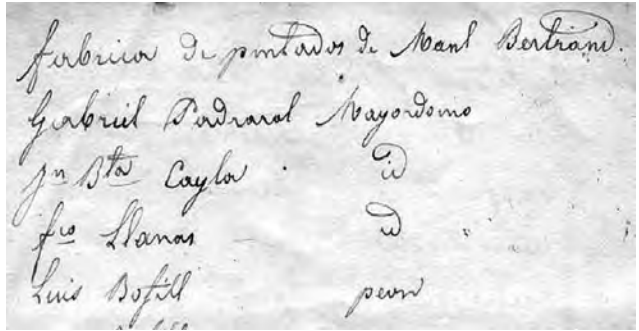 Fabrica de pintados de Manl Bertrand.
Gabriel Padrosol Mayordomo
Jn Bta Cayla id
fco Llanas id
Luis Bofill peon